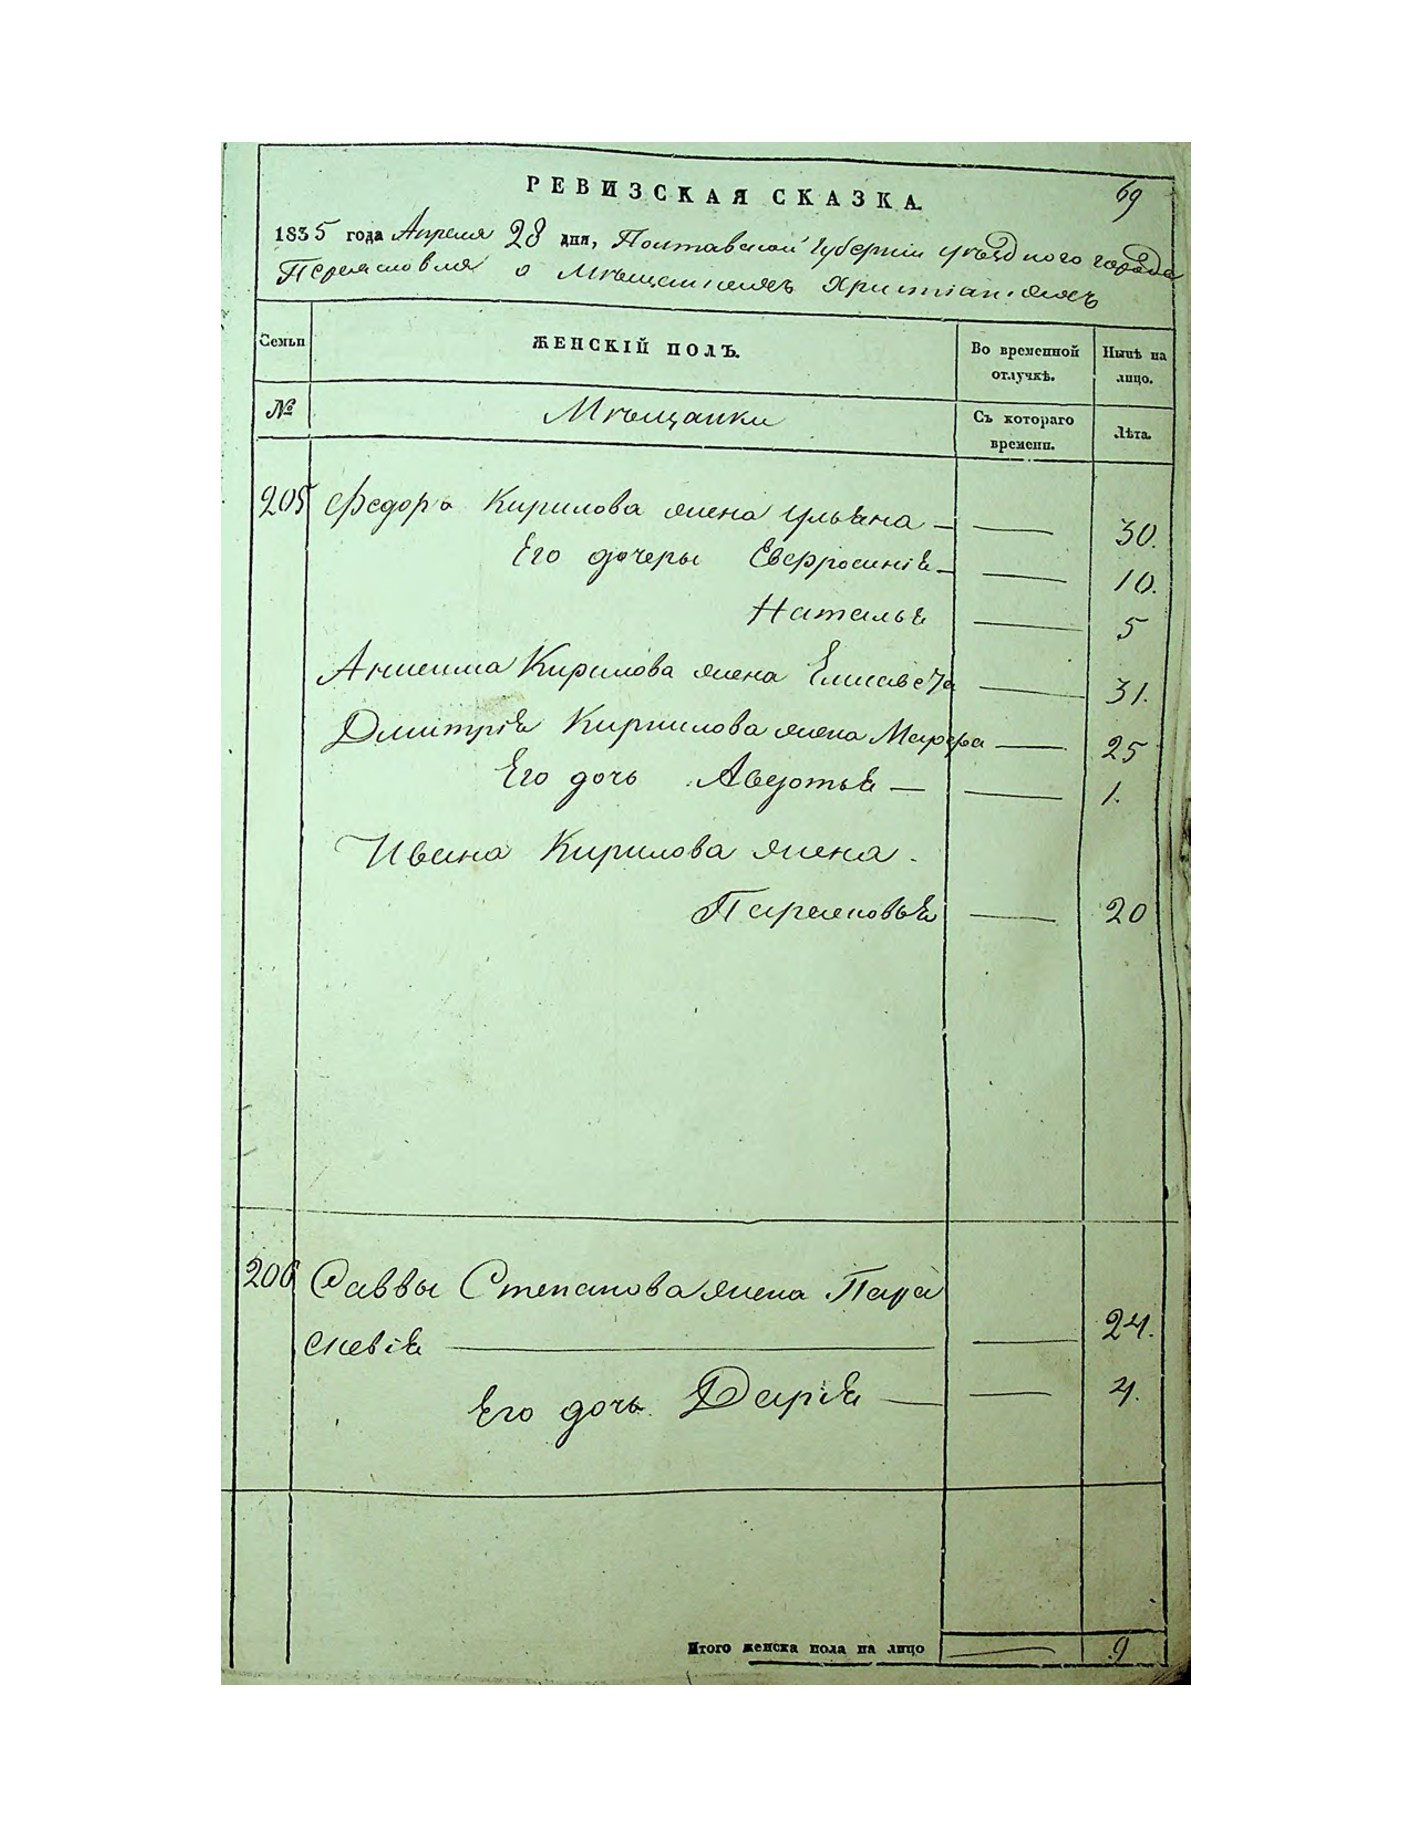 69
РЕВИЗСКАЯ СКАЗКА.
1835 года Апреля 28 дня, Полтавской Губерніи уѣзднаго города
Переяславля о Мѣщанахъ Христіанахъ
Семьи
ЖЕНСКІЙ ПОЛЪ.
Во временной отлучкѣ.
Нынѣ на лицо.
№
Мѣщанки
Съ котораго времени.
Лѣта.
205 Федора Кирилова жена Ульяна — — 30.
Его дочеры Евфросинія — — 10.
Наталья — 5
Анисима Кирилова жена Елисавета — 31.
Дмитрія Кирилова жена Марфа — 25
Его дочь Авдотья — — 1.
Ивана Кирилова жена.
— 20
206 Саввы Степанова жена Пара
скевія — — 24.
Его дочь Дарія — — 4.
Итого женска пола на лицо — 9